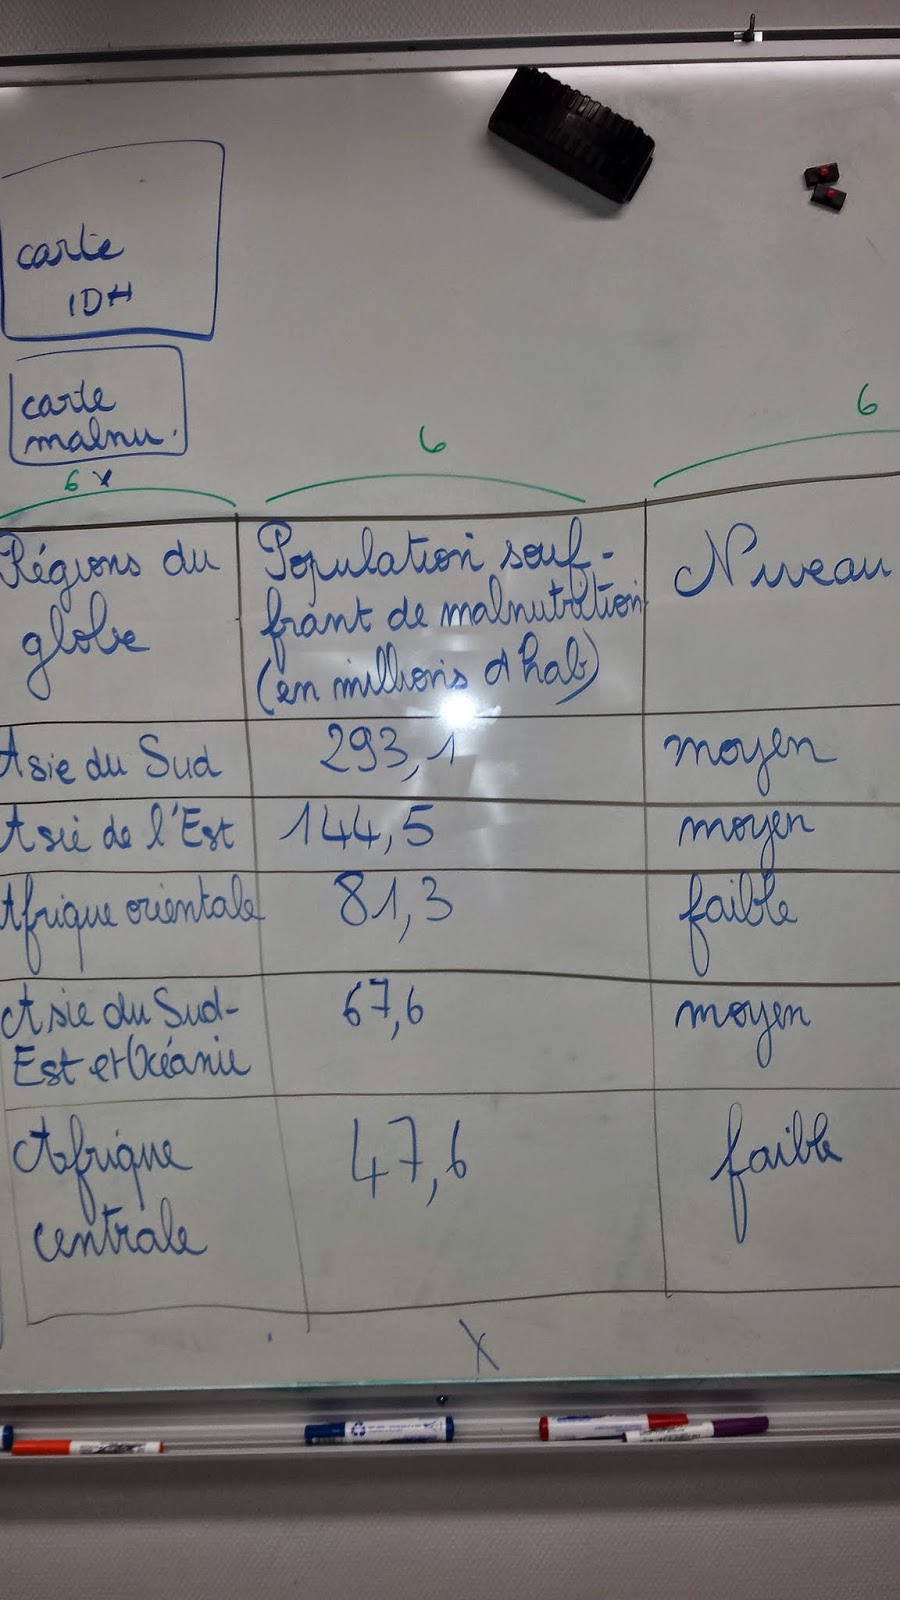 carte
IDH
carte
malnu.
6
6
6
Régions du
globe
Population souf-
frant de malnutrition
(en millions d'hab)
Niveau
Asie du Sud
293,1
moyen
Asie de l'Est
144,5
moyen
Afrique orientale
81,3
faible
Asie du Sud-
Est et Océanie
67,6
moyen
Afrique
centrale
47,6
faible
X